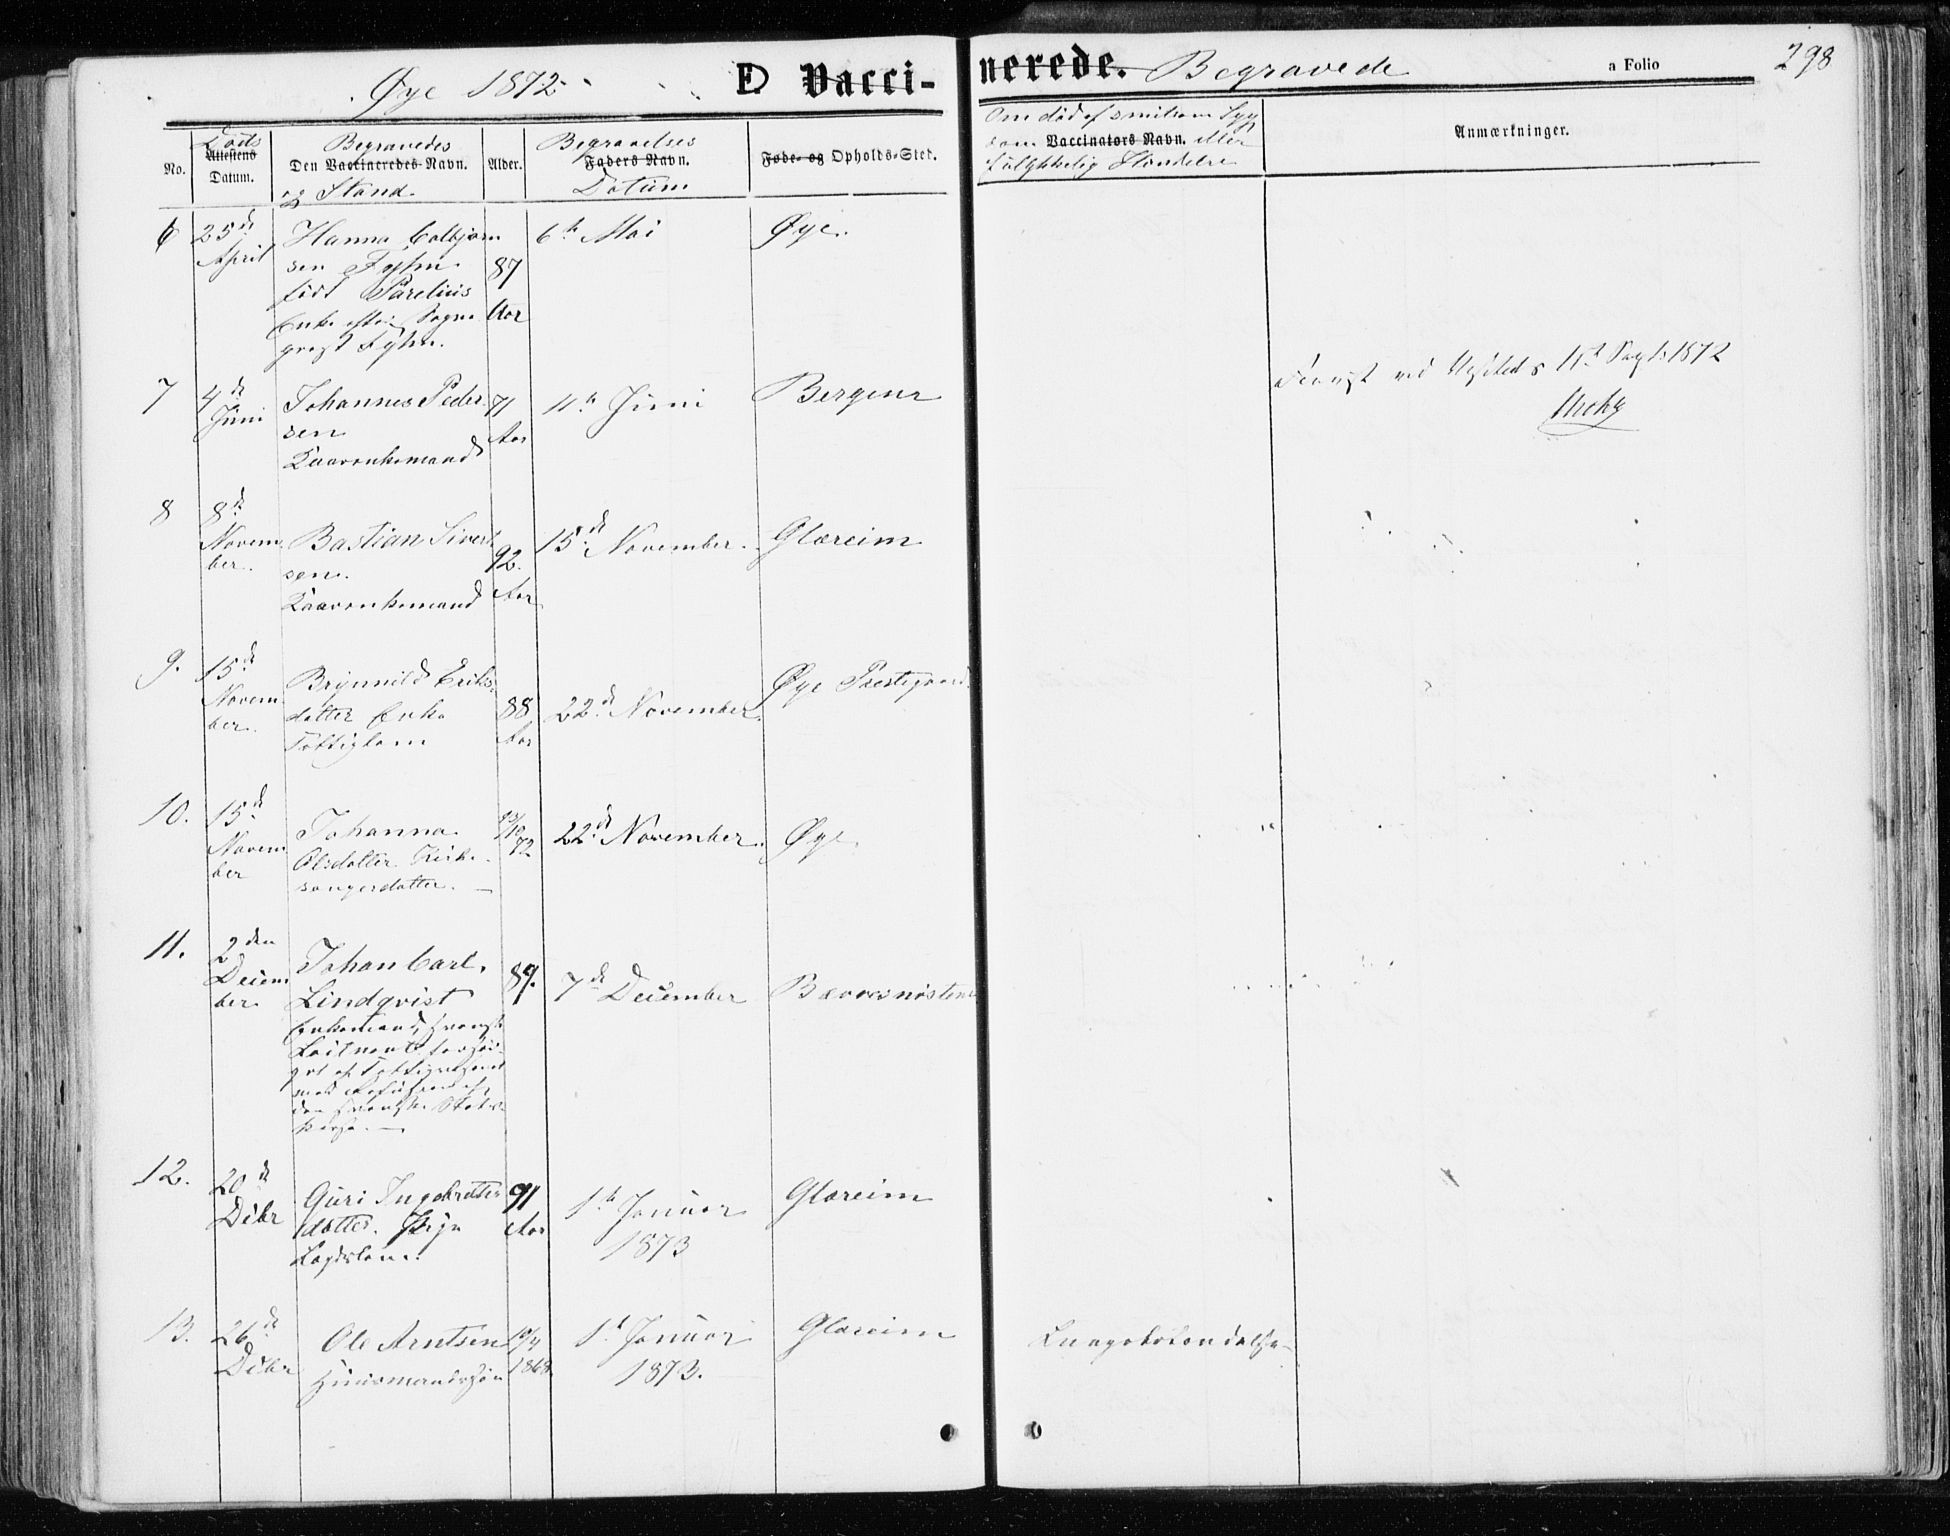 Øye 1872. E. Vacci-nerede. Begravede a Folio 298
No.
Døds
Attestens
Datum.
Begravedes
Den Vaccineredes Navn.
og Stand.
Alder.
Begravelses
Faders Navn.
Datum
Føde- og Opholds-Sted.
Om død af smitsom Syg
dom Vaccinators Navn. eller
ulykkelig Hændelse
Anmærkninger.
6 25de April
Hanna Colbjørn
sen Fyhn
født Parelius
Enke efter Sogne
prest Fyhn.
87 Aar
6te Mai
Øye.
7 4de Juni
Johannes Peder
sen
Kaarenkemand
71 Aar
11te Juni
Bergene
Fævugt ved 11te Sept: 1872
8 8de Novem
ber.
Bastian Sivert
sen.
Kaarenkemand
92. Aar
15de November.
Glæreim
9. 15de Novem
ber.
Brynnild Eriks
datter Enke
Fattiglem
88 Aar
22de November.
Øye Prestegaard.
10. 15de Novem
ber
Johanna
Olsdatter Kirke
sangerdatter.
22de November.
Øye
11. 2den Decem
ber
Johan Carl
Lindqvist
Enkemand, svensk
Løitnant forsør
get af Fattigvæsenet
med Refusion af
den svenske Stats
kasse.
89.
7de December
Bæversnøstene
12. 20de Dcbr
Guri Ingebrigts
datter. Pige
Lægdslem.
91 Aar
1te Januar
1873
Glæreim
13. 26de Dcbr
Ole Arntsen
Huusmandssøn
1868
1te Januar
1873.
Glæreim
Lungebetændelse